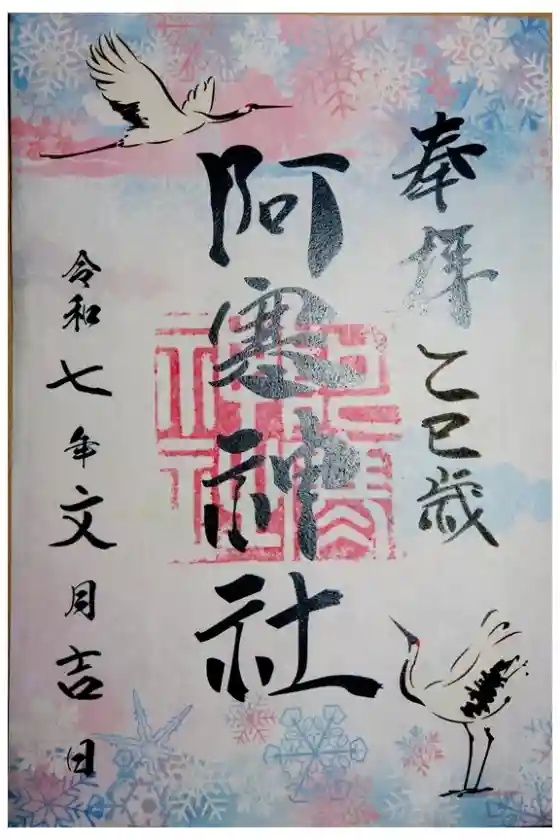 奉拝 乙巳歳
阿寒神社
令和七年文月吉日